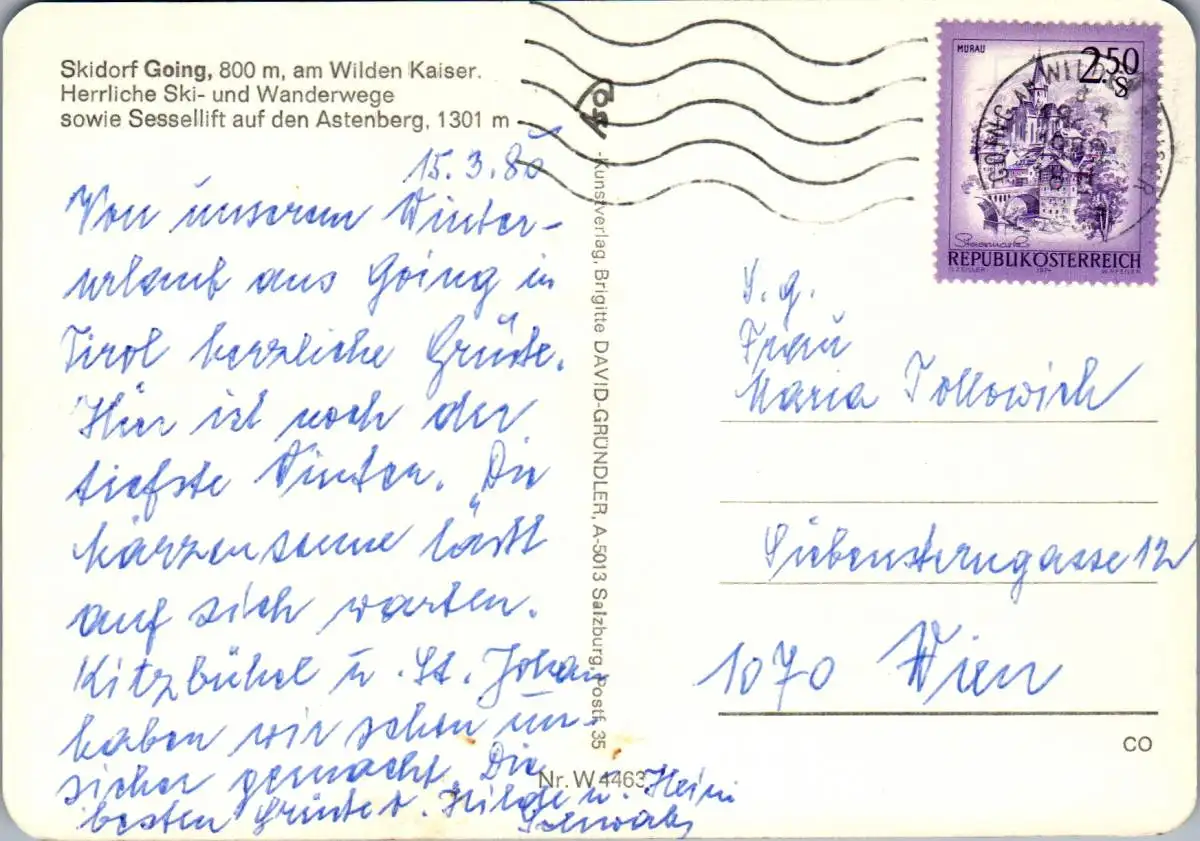 Skidorf Going, 800 m, am Wilden Kaiser.
Herrliche Ski- und Wanderwege
sowie Sessellift auf den Astenberg, 1301 m
15.3.80
Von unserem Winter-
urlaub aus Going in
Tirol herzliche Grüße.
Hier ist noch der
tiefste Winter. Die
Märzensonne läßt
auf sich warten.
Kitzbühel u. St. Johann
haben wir schon un-
sicher gemacht. Die
besten Grüße v. Hilde u. Heini
Schwab
Kunstverlag, Brigitte DAVID-GRÜNDLER, A-5013 Salzburg, Postf. 35
Nr. W 4463
MURAU
2.50
S
REPUBLIK ÖSTERREICH
1974
GOING AM WILDEN KAISER
S. g.
Frau
Maria Tollowich
Siebensterngasse 12
1070 Wien
CO